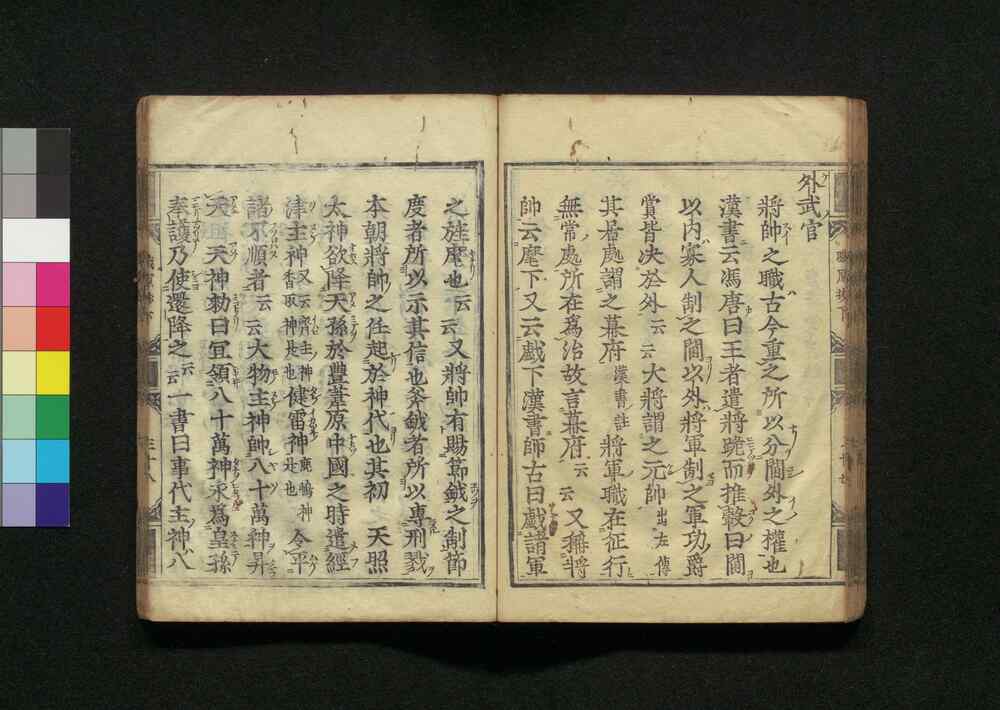 外武官
將帥之職古今重之所以分閫外之權也
漢書云馮唐曰王者遣將跪而推轂曰閫
以内寡人制之閫以外將軍制之軍功爵
賞皆决於外云云大將謂之元帥出左傳
其居處謂之幕府漢書註將軍職在征行
無常處所在爲治故言幕府云云又稱將
帥云麾下又云戲下漢書師古曰戲諸軍
之旌麾也云云又將帥有賜節鉞之制節
度者所以示其信也斧鉞者所以專刑戮
本朝將帥之任起於神代也其初天照
太神欲降天孫於豊葦原中國之時遣經
津主神又云齋主神香取神是也健雷神鹿嶋神是也令平
諸不順者云云大物主神帥八十萬神昇
天天神勅曰宜領八十萬神永爲皇孫
奉護乃使還降之云云一書曰事代主神八